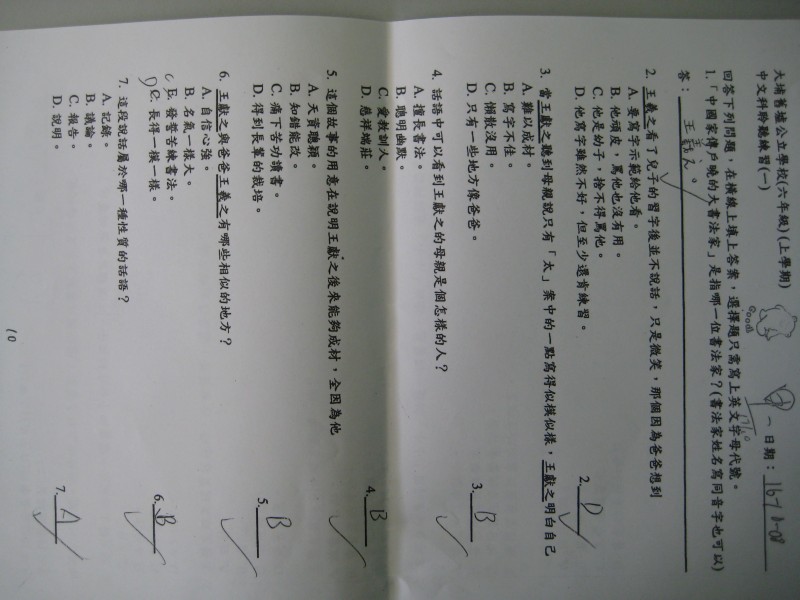 大埔舊墟公立學校(六年級)(上學期)
中文科聆聽練習(一)
一日期：16-10-08
Good!
回答下列問題，在橫線上填上答案，選擇題只需寫上英文字母代號。
1.「中國家傳戶曉的大書法家」是指哪一位書法家？(書法家姓名寫同音字也可以)
答：
2. 王羲之看了兒子的習字後並不說話，只是微笑，那個因為爸爸想到
A. 要寫字示範給他看。
B. 他頑皮，罵他也沒有用。
C. 他是幼子，捨不得罵他。
D. 他寫字雖然不好，但至少還肯練習。
2. D
3. 當王獻之聽到母親說只有「太」案中的一點寫得似模似樣，王獻之明白自己
A. 難以成材。
B. 寫字不佳。
C. 懶散沒用。
D. 只有一些地方像爸爸。
3. B
4. 話語中可以看到王獻之的母親是個怎樣的人？
A. 擅長書法。
B. 聰明幽默。
C. 愛教訓人。
D. 慈祥端莊。
4. B
5. 這個故事的用意在說明王獻之後來能夠成材，全因為他
A. 天資聰穎。
B. 知錯能改。
C. 痛下苦功讀書。
D. 得到長輩的栽培。
5. B
6. 王獻之與爸爸王羲之有哪些相似的地方？
A. 自信心強。
B. 名氣一樣大。
C 發奮苦練書法。
D 長得一模一樣。
6. B
7. 這段說話屬於哪一種性質的話語？
A. 記錄。
B. 議論。
C. 報告。
D. 說明。
7. A
10